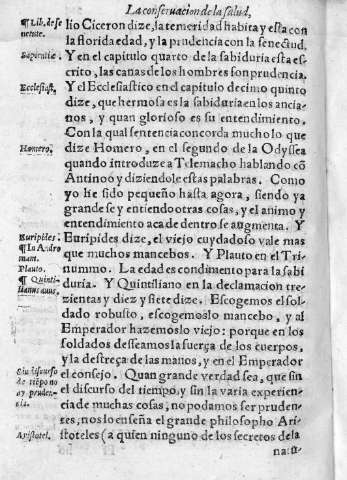 La conseruacion de la salud,
¶ Lib. de se
netute.
lio Ciceron dize, la temeridad habita y esta con
la florida edad, y la prudencia con la senectud.
Sapientiæ
Y en el capitulo quarto de la sabiduria esta es-
crito, las canas de los hombres son prudencia.
Ecclesiast,
Y el Ecclesiastico en el capitulo decimo quinto
dize, que hermosa es la sabiduria en los ancia-
nos, y quan glorioso es su entendimiento.
Con la qual sentencia concorda mucho lo que
Homero,
dize Homero, en el segundo de la Odyssea
quando introduze a Telemacho hablando cõ
Antinoo y diziendole estas palabras. Como
yo he sido pequeño hasta agora, siendo ya
grande se y entiendo otras cosas, y el animo y
entendimiento aca de dentro se augmenta. Y
Euripides.
¶ In Andro
mam.
Euripides dize, el viejo cuydadoso vale mas
que muchos mancebos. Y Plauto en el Tri-
Plauto.
nummo. La edad es condimento para la sabi
¶ Quinti-
lianus
duria. Y Quintiliano en la declamacion tre-
zientas y diez y siete dize. Escogemos el sol-
dado robusto, escogemoslo mancebo, y al
Emperador hazemoslo viejo: porque en los
soldados desseamos la fuerça de los cuerpos,
y la destreça de las manos, y en el Emperador
Sin discurso
de tiẽpo no
ay pruden-
cia.
el consejo. Quan grande verdad sea, que sin
el discurso del tiempo, y sin la varia experien
cia de muchas cosas, no podamos ser pruden-
tes, nos lo enseña el grande philosopho Ari-
Aristotel.
stoteles (a quien ninguno de los secretos de la
natu-